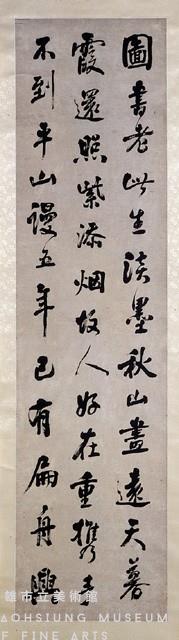 圖書老此生淡墨秋山盡遠天暮
霞還照紫添烟故人好在重携手
不到平山謾五年已有扁舟興
雄市立美術館
AOHSIUNG MUSEUM
F FINE ARTS